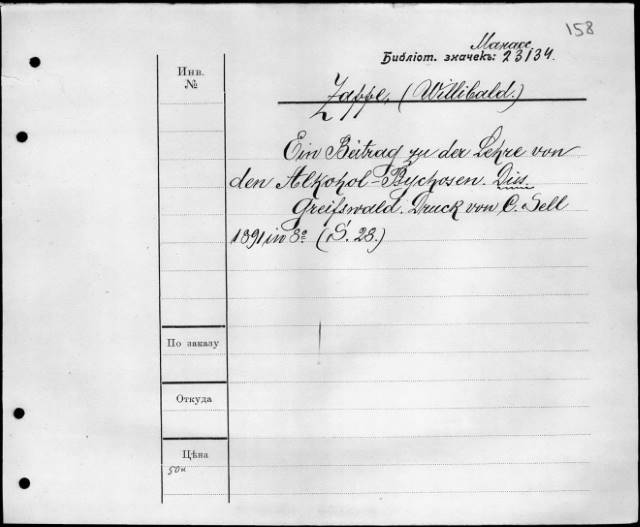 158
Манасс.
Библіот. значекъ: 23134.
Инв.
№
Zappe, (Willibald.)
Ein Beitrag zu der Lehre von
den Alkohol-Psychosen. Diss.
Greifswald. Druck von C. Sell
1891 in 8º (S. 28.)
По заказу
Откуда
Цѣна
50к